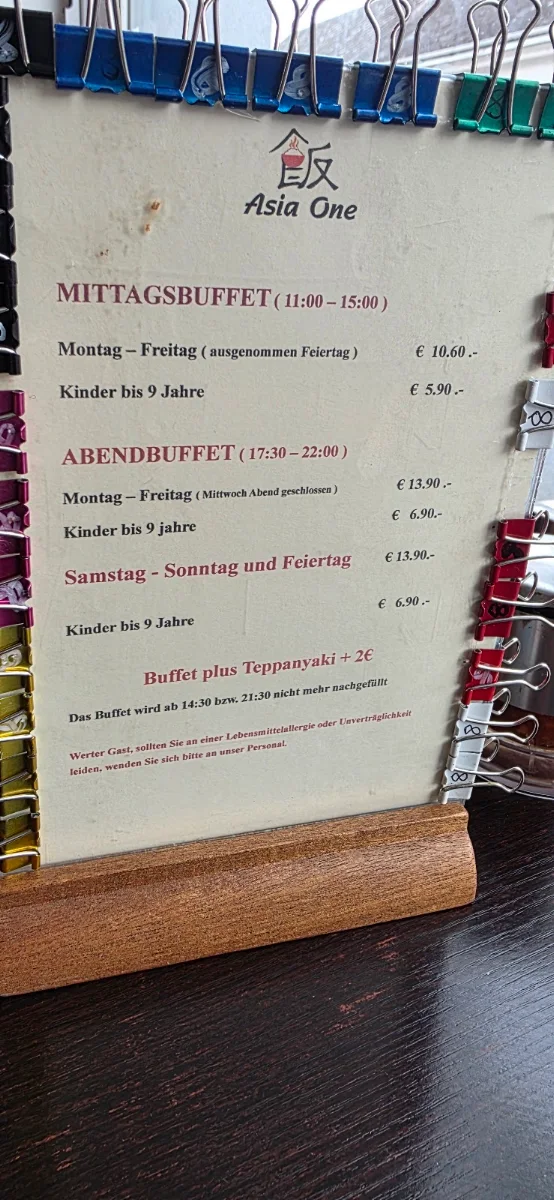 飯
Asia One
MITTAGSBUFFET ( 11:00 – 15:00 )
Montag – Freitag ( ausgenommen Feiertag ) € 10.60 .-
Kinder bis 9 Jahre € 5.90 .-
ABENDBUFFET ( 17:30 – 22:00 )
Montag – Freitag ( Mittwoch Abend geschlossen ) € 13.90 .-
Kinder bis 9 jahre € 6.90.-
Samstag - Sonntag und Feiertag € 13.90.-
Kinder bis 9 Jahre € 6.90 .-
Buffet plus Teppanyaki + 2€
Das Buffet wird ab 14:30 bzw. 21:30 nicht mehr nachgefüllt
Werter Gast, sollten Sie an einer Lebensmittelallergie oder Unverträglichkeit
leiden, wenden Sie sich bitte an unser Personal.
8
8
8